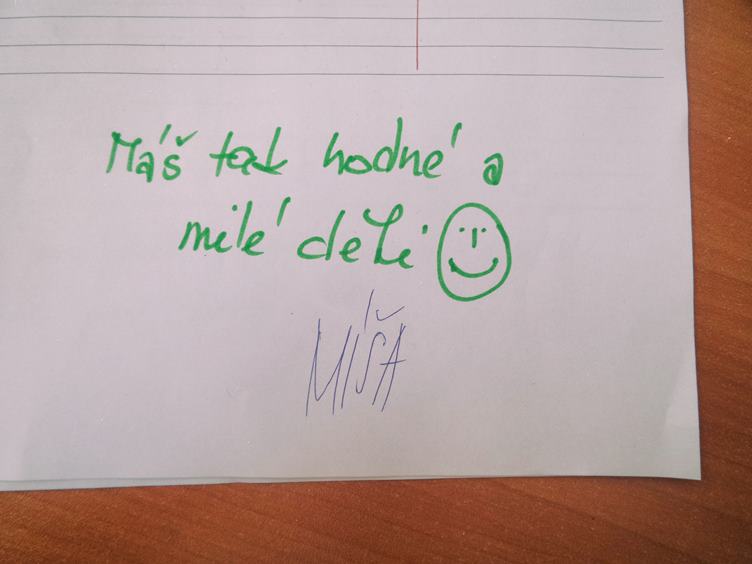 Máš tak hodné a
milé deti
MÍŠA